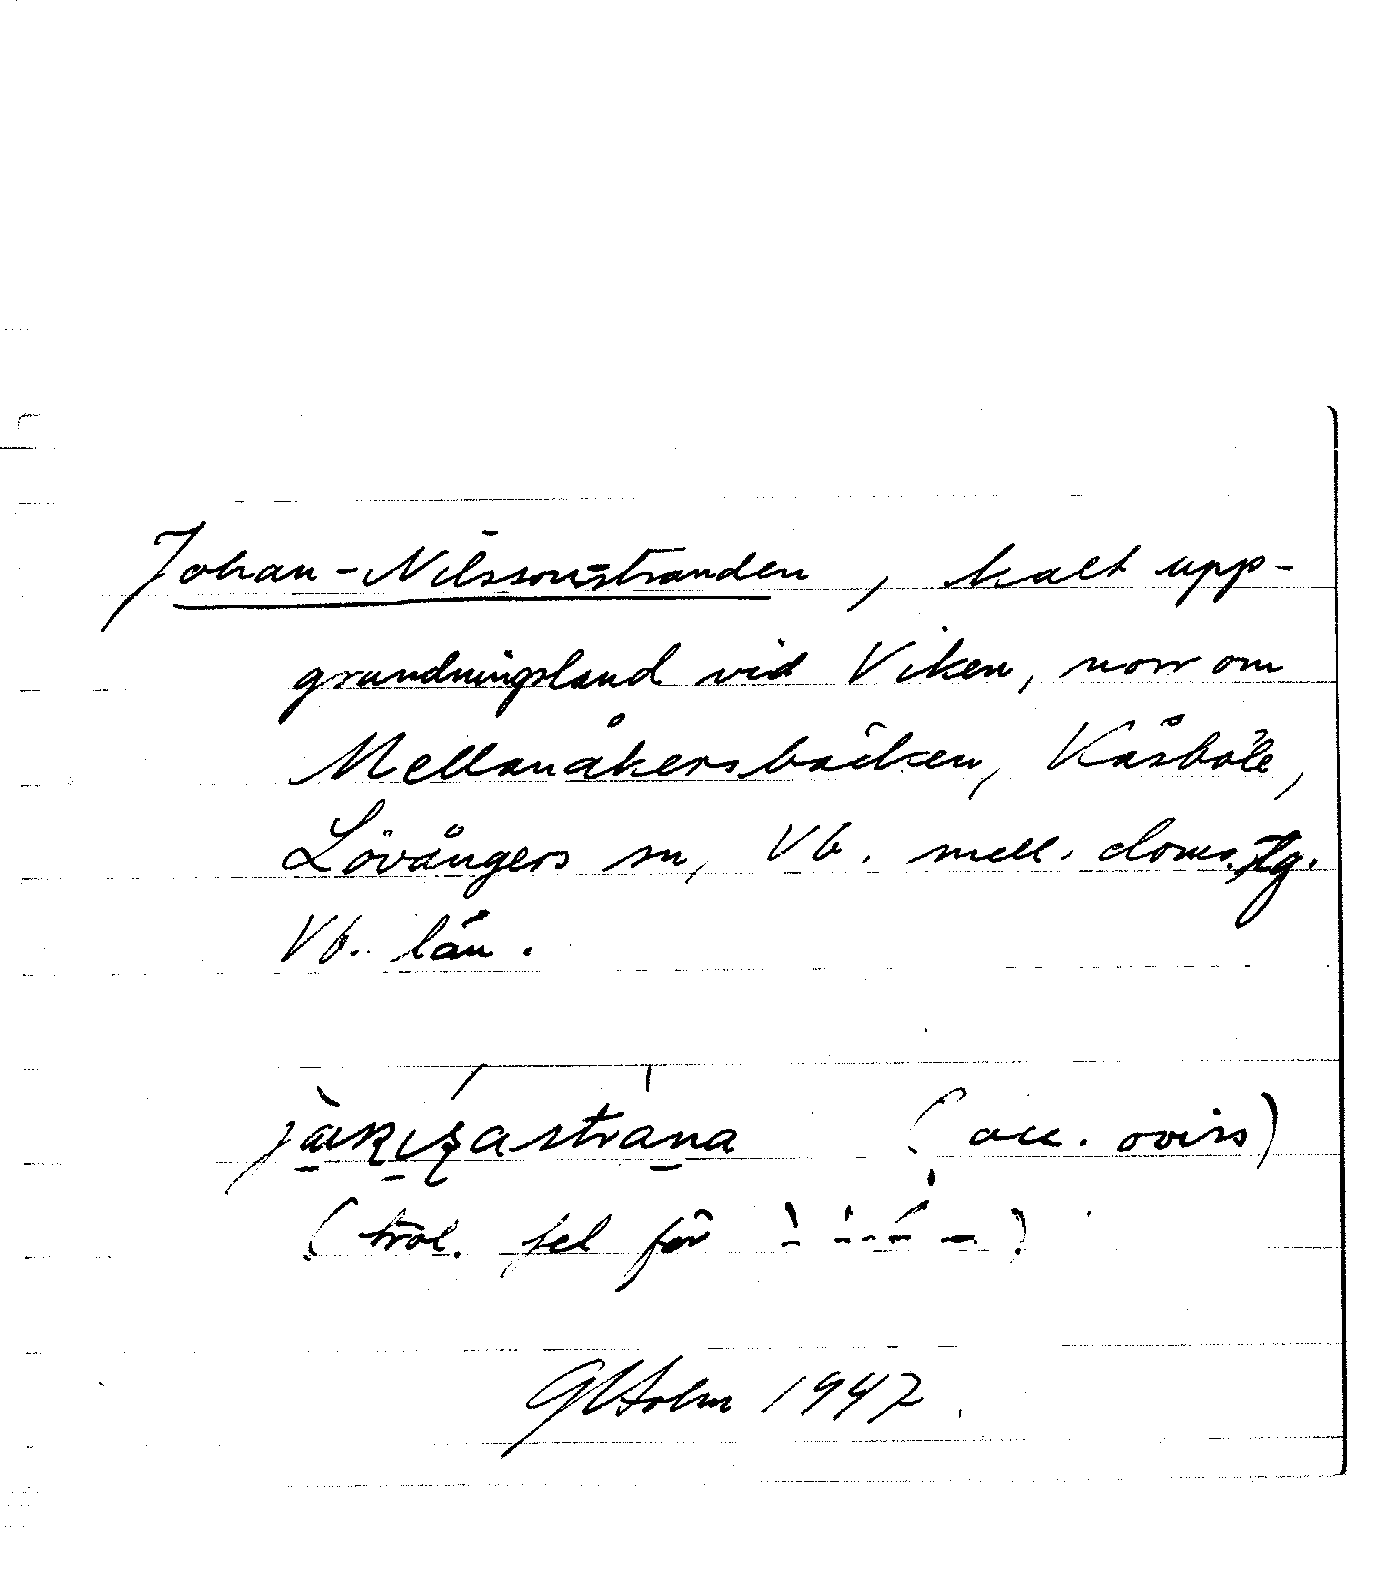 Johan-Nilssonstranden, kalt upp-
grundningsland vid Viken, norr om
Mellanåkersbäcken, Kåsböle,
Lövångers sn, Vb. mell. doms. tg.
Vb. län.
(acc. oviss)
(trol. fel för
GHolm 1947